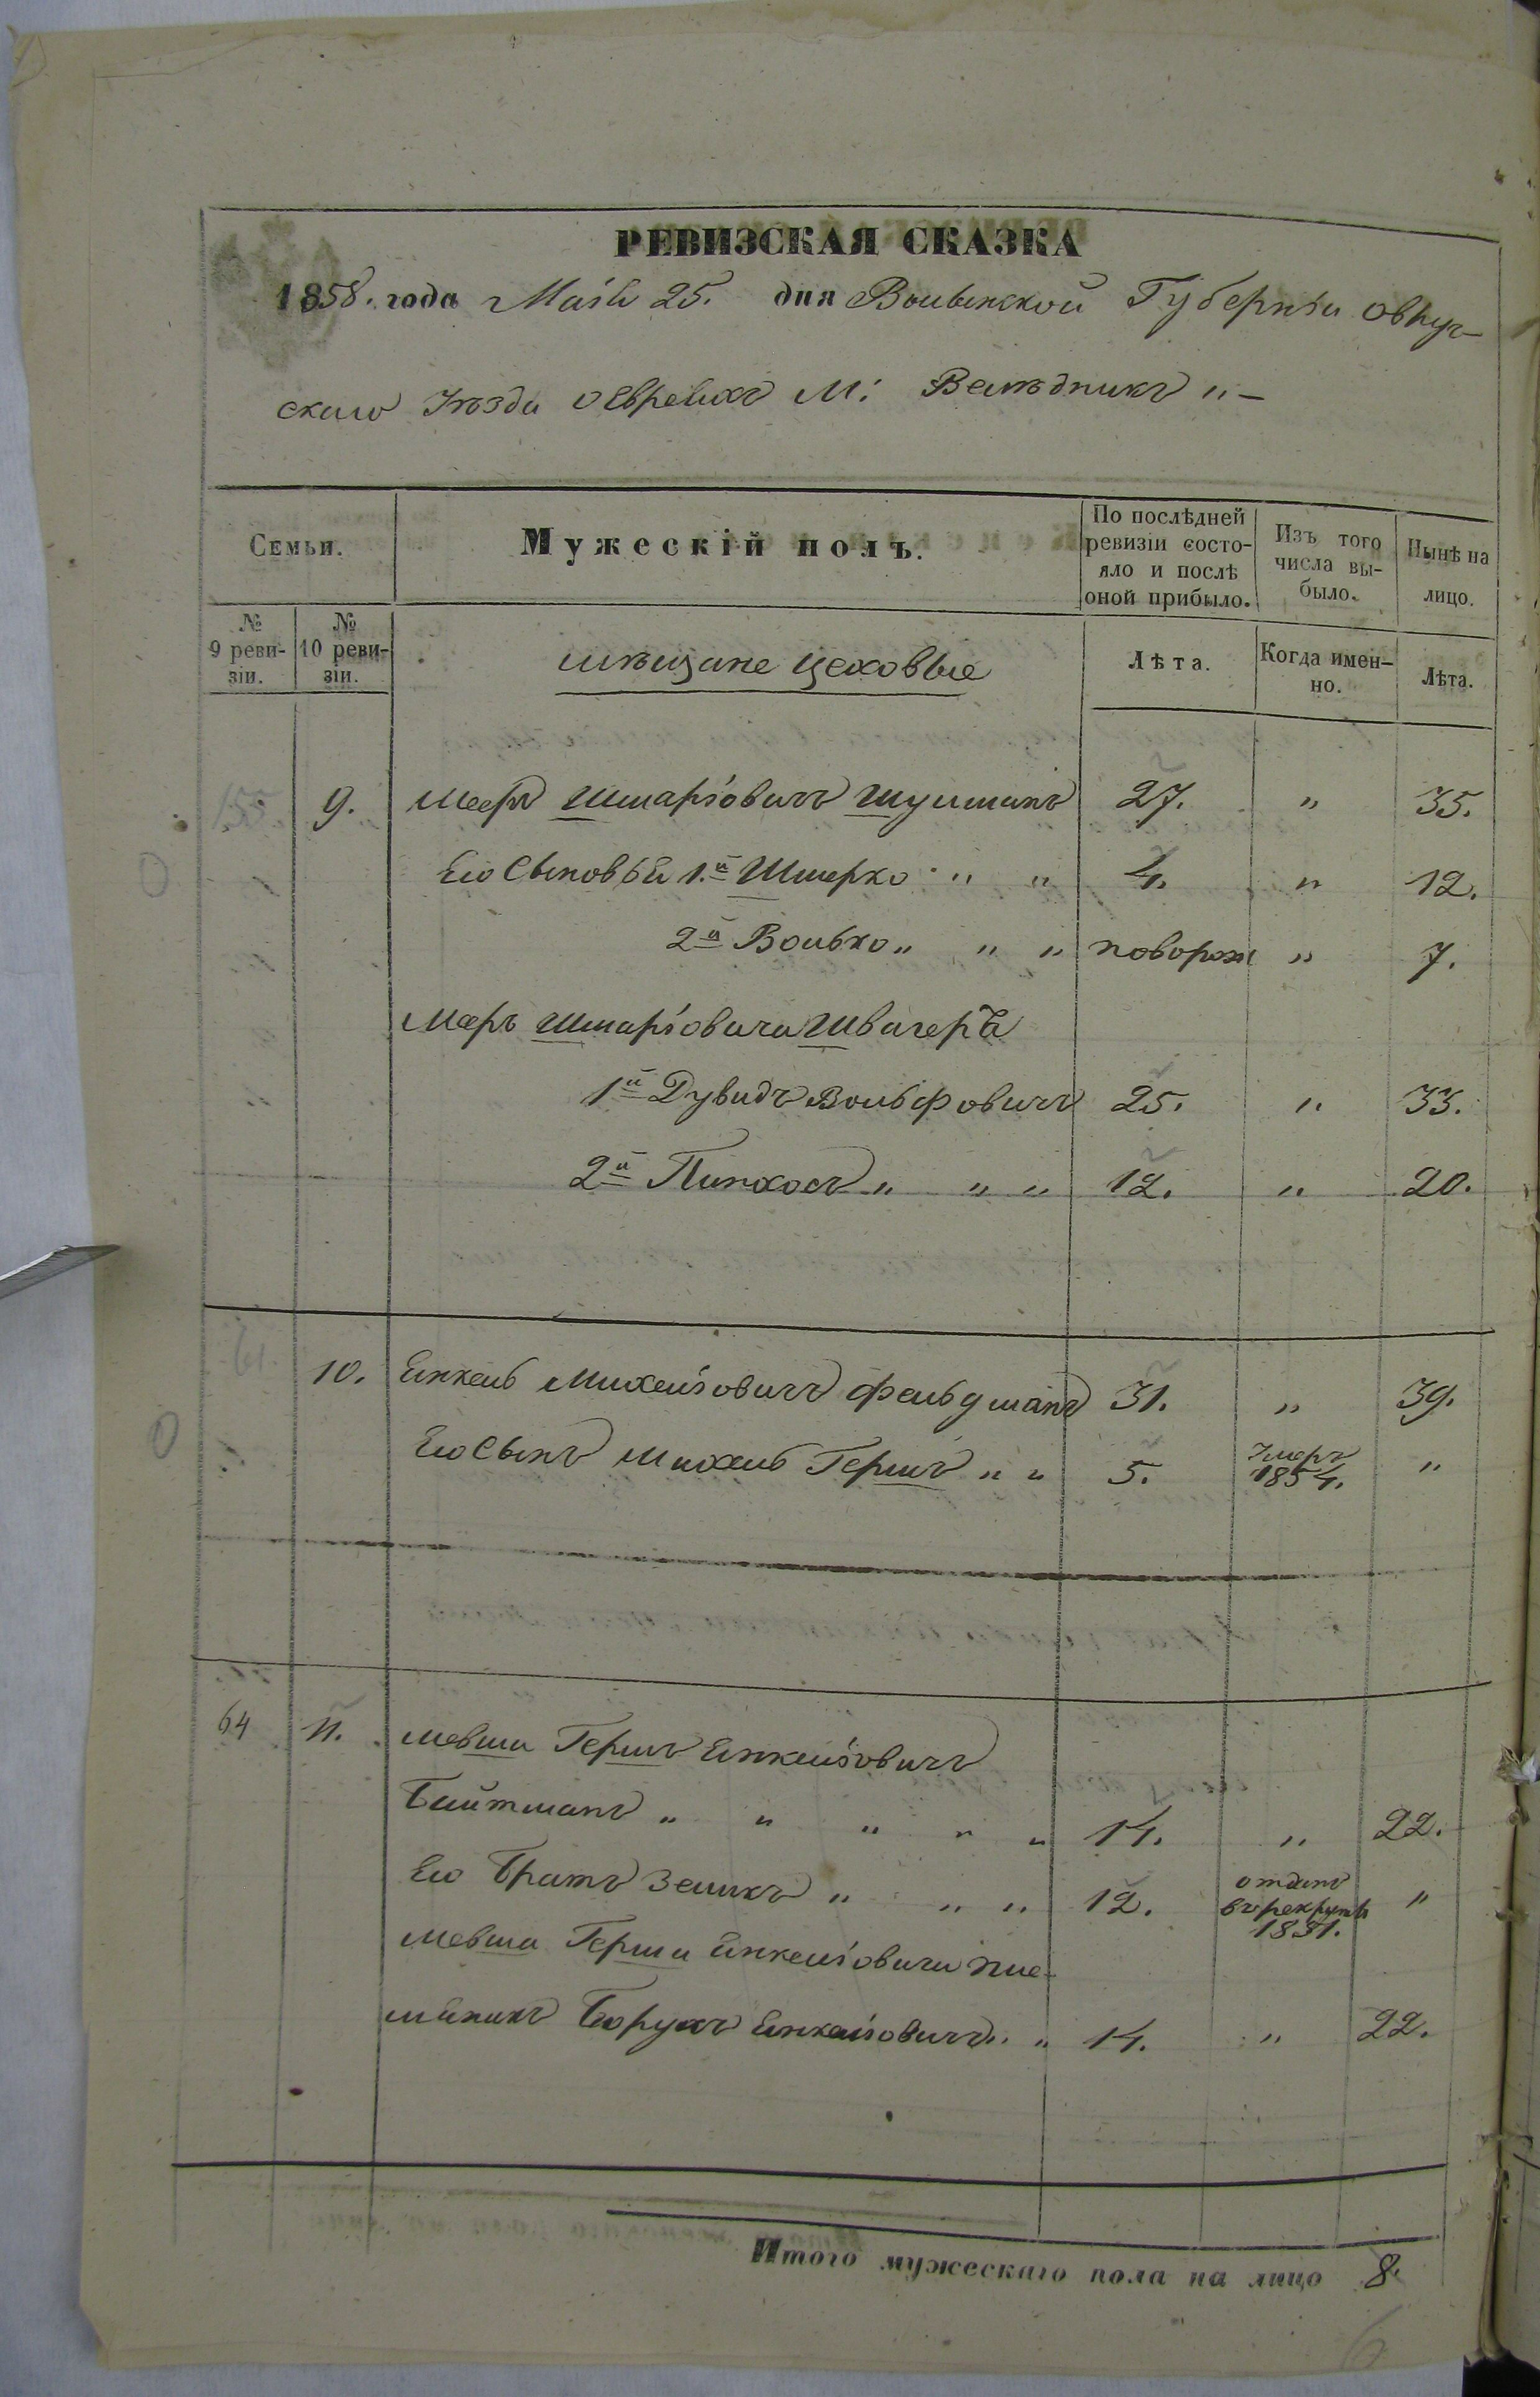 РЕВИЗСКАЯ СКАЗКА
1858. года Маія 25. дня Волынской Губерніи Овруч-
скаго Уѣзда о Евреяхъ М: Велѣдникъ „ –
Семьи.
Мужескій полъ.
По послѣдней ревизіи состо-яло и послѣ оной прибыло.
Изъ того числа вы-было.
Нынѣ на лицо.
№ 9 реви-зіи.
№ 10 реви-зіи.
мѣщане цеховые
Лѣта.
Когда имен-но.
Лѣта.
155. 9. Меер Шмаріовичъ Шулманъ 27. „ 35.
Его Сыновья 1.й Шмерко „ „ 4. „ 12.
2й Волько „ „ „ новорож „ 7.
Меръ Шмаріовича Швагера
1й Дувидъ Вольфовичъ 25. „ 33.
2й Пинхосъ „ „ „ 12. „ 20.
61. 10. Янкель Михеліовичъ Фельдманъ 31. „ 39.
Его Сынъ Михель Гершъ „ „ 5. Умеръ 1854. „
64 11. Мевша Гершъ Янкеліовичъ
Байтманъ „ „ „ „ „ 14. „ 22.
Его Братъ Зеликъ „ „ „ 12. отданъ въ рекруты 1851. „
Мевша Герша Янкеліовича пле-
мяникъ Борухъ Янкеліовичъ „ „ 14. „ 22.
Итого мужескаго пола на лицо 8.
6